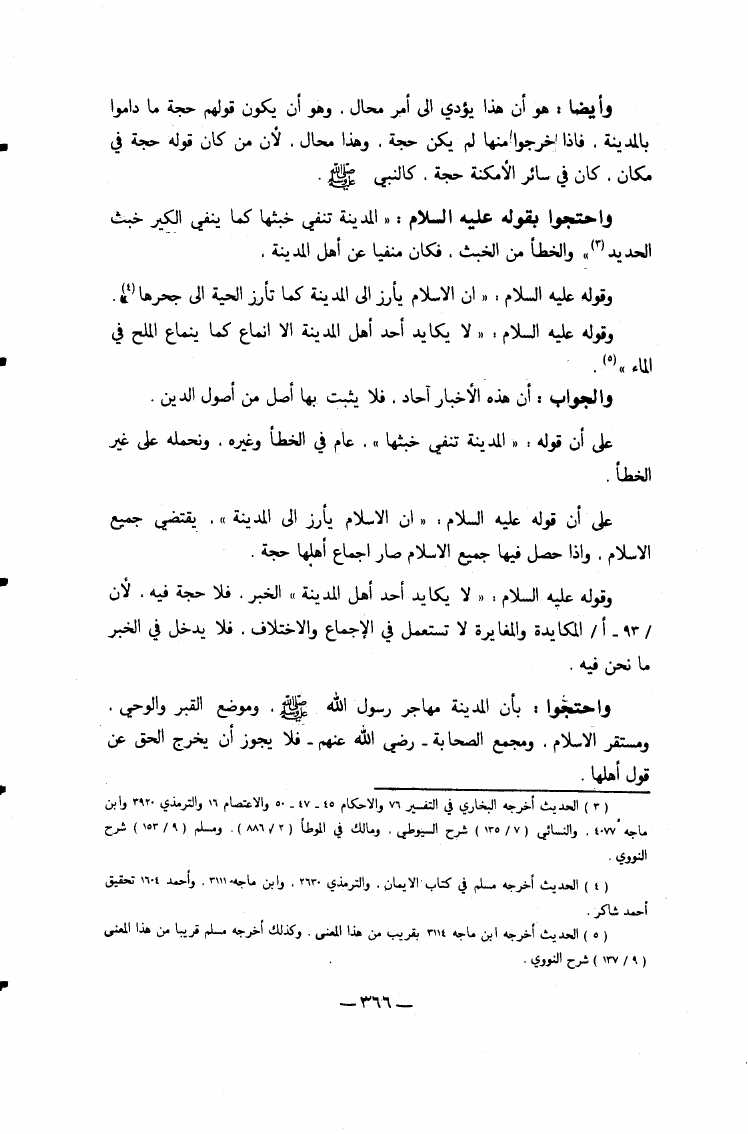 وأيضا : هو أن هذا يؤدي الى أمر محال ، وهو أن يكون قولهم حجة ما داموا
بالمدينة ، فاذا خرجوا منها لم يكن حجة ، وهذا محال ، لأن من كان قوله حجة في
مكان ، كان في سائر الأمكنة حجة ، كالنبي ﷺ .
واحتجوا بقوله عليه السلام : « المدينة تنفي خبثها كما ينفي الكير خبث
الحديد(٣)» والخطأ من الخبث ، فكان منفيا عن أهل المدينة .
وقوله عليه السلام : « ان الاسلام يأرز الى المدينة كما تأرز الحية الى جحرها(٤)» .
وقوله عليه السلام : « لا يكايد أحد أهل المدينة الا انماع كما ينماع الملح في
الماء »(٥) .
والجواب : أن هذه الأخبار آحاد ، فلا يثبت بها أصل من أصول الدين .
على أن قوله : « المدينة تنفي خبثها » ، عام في الخطأ وغيره ، ونحمله على غير
الخطأ .
على أن قوله عليه السلام : « ان الاسلام يأرز الى المدينة » ، يقتضي جميع
الاسلام ، واذا حصل فيها جميع الاسلام صار اجماع أهلها حجة .
وقوله عليه السلام : « لا يكايد أحد أهل المدينة » الخبر ، فلا حجة فيه ، لأن
/ ٩٣ ـ أ / المكايدة والمغايرة لا تستعمل في الإجماع والاختلاف ، فلا يدخل في الخبر
ما نحن فيه .
واحتجوا : بأن المدينة مهاجر رسول الله ﷺ ، وموضع القبر والوحي ،
ومستقر الاسلام ، ومجمع الصحابة ـ رضي الله عنهم ـ فلا يجوز أن يخرج الحق عن
قول أهلها .
( ٣ ) الحديث أخرجه البخاري في التفسير ٧٦ والاحكام ٤٥ ـ ٤٧ ـ ٥٠ والاعتصام ١٦ والترمذي ٣٩٢٠ وابن
ماجه ٤٠٧٧ ، والنسائي ( ٧ / ١٣٥ ) شرح السيوطي ، ومالك في الموطأ ( ٢ / ٨٨٦ ) . ومسلم ( ٩ / ١٥٣ ) شرح
النووي .
( ٤ ) الحديث أخرجه مسلم في كتاب الايمان ، والترمذي ٢٦٣٠ ، وابن ماجه ٣١١١ ، وأحمد ١٦٠٤ تحقيق
أحمد شاكر .
( ٥ ) الحديث أخرجه ابن ماجه ٣١١٤ بقريب من هذا المعنى ، وكذلك أخرجه مسلم قريبا من هذا المعنى
( ٩ / ١٣٧ ) شرح النووي .
— ٣٦٦ —